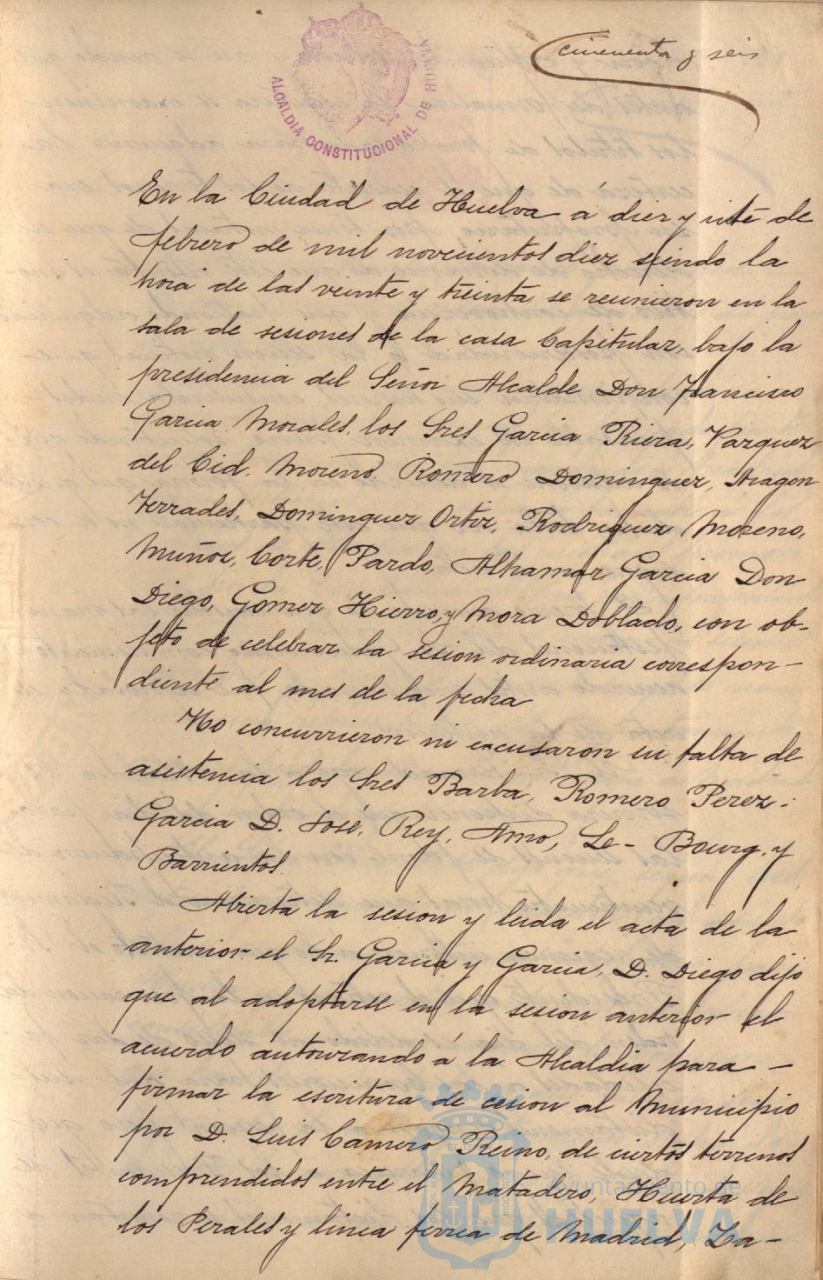 cincuenta y seis
ALCALDIA CONSTITUCIONAL DE HUELVA
En la Ciudad de Huelva á diez y siete de
febrero de mil novecientos diez siendo la
hora de las veinte y treinta se reunieron en la
sala de sesiones de la casa Capitular, bajo la
presidencia del Señor Alcalde Don Francisco
Garcia Morales, los Sres Garcia Riera, Vazquez
del Cid, Moreno, Romero Dominguez, Aragon
Terrades, Dominguez Ortiz, Rodriguez Moreno,
Muñoz, Corte, Pardo, Garcia Don
Diego, Gomez Hierro, y Mora Doblado, con ob-
jeto de celebrar la sesion ordinaria correspon-
diente al mes de la fecha
No concurrieron ni excusaron su falta de
asistencia los Sres Barba, Romero Perez,
Garcia D. José, Rey, Amo, Le-Bourg, y
Barrientos.
Abierta la sesion y leida el acta de la
anterior el Sr. Garcia y Garcia, D. Diego dijo
que al adoptarse en la sesion anterior el
acuerdo autorizando á la Alcaldia para -
firmar la escritura de cesion al Municipio
por D. Luis Camero Reino, de ciertos terrenos
comprendidos entre el Matadero, Huerta de
los Perales y linea ferrea de Madrid, Za-
Ayuntamiento de
HUELVA